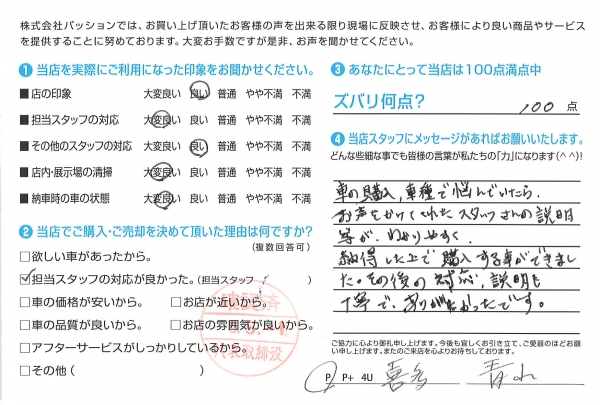 株式会社パッションでは、お買い上げ頂いたお客様の声を出来る限り現場に反映させ、お客様により良い商品やサービス
を提供することに努めております。大変お手数ですが是非、お声を聞かせてください。
1 当店を実際にご利用になった印象をお聞かせください。
■店の印象 大変良い 良い 普通 やや不満 不満
■担当スタッフの対応 大変良い 良い 普通 やや不満 不満
■その他のスタッフの対応 大変良い 良い 普通 やや不満 不満
■店内・展示場の清掃 大変良い 良い 普通 やや不満 不満
■納車時の車の状態 大変良い 良い 普通 やや不満 不満
2 当店でご購入・ご売却を決めて頂いた理由は何ですか?
(複数回答可)
□欲しい車があったから。
☑担当スタッフの対応が良かった。(担当スタッフ )
□車の価格が安いから。 □お店が近いから。
□車の品質が良いから。 □お店の雰囲気が良いから。
□アフターサービスがしっかりしているから。
□その他( )
済
代表取締役
3 あなたにとって当店は100点満点中
ズバリ何点? 100 点
4 当店スタッフにメッセージがあればお願いいたします。
どんな些細な事でも皆様の言葉が私たちの「力」になります(^^)!
車の購入、車種で悩んでいたら、
お声をかけてくれたスタッフさんの説明
等が、わかりやすく、
納得した上で購入する事ができまし
た。その後の対応、説明も
丁寧で、ありがたかったです。
ご協力に心より御礼申し上げます。今後も宜しくお引き立て、ご愛顧のほどお願
い申し上げます。またのご来店を心よりお待ちしております。
P P+ 4U 喜多